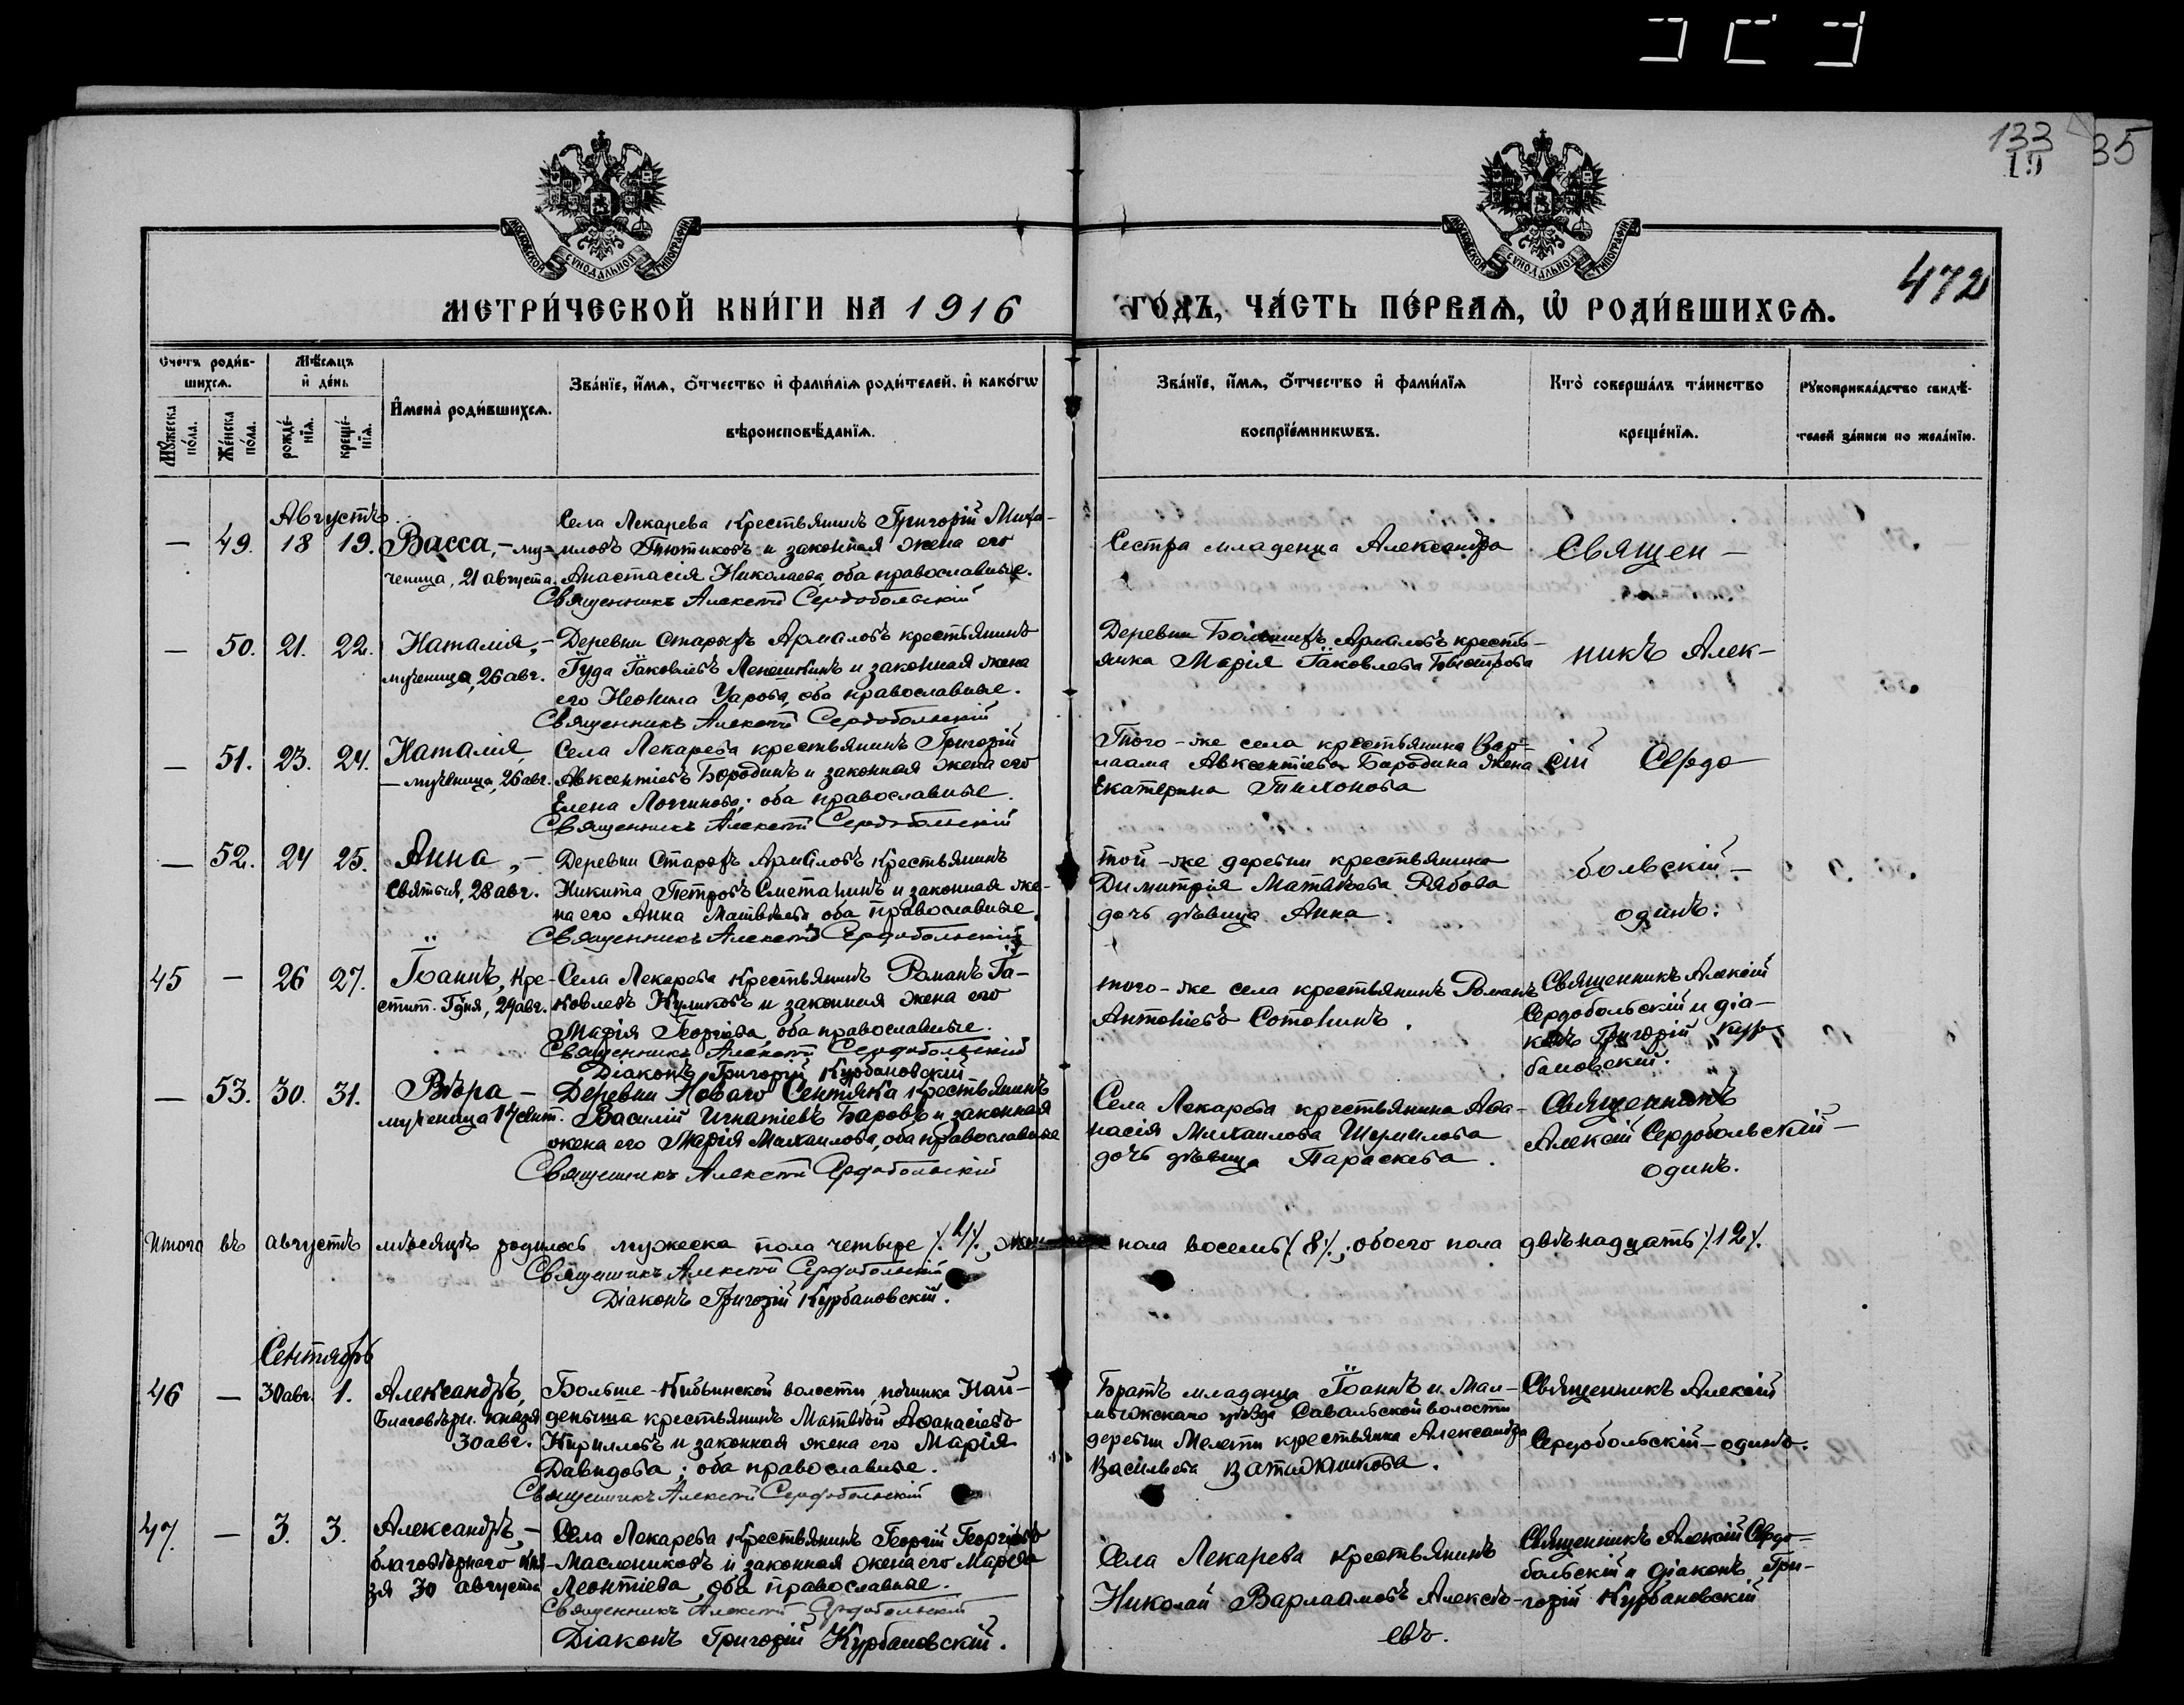 133
35
МОСКОВСКОЙ СУНОДАЛЬНОЙ ТИПОГРАФІИ
МОСКОВСКОЙ СУНОДАЛЬНОЙ ТИПОГРАФІИ
472
МЕТРИ́ЧЕСКОЙ КНИ́ГИ НА 1916 ГО́ДЪ, ЧА́СТЬ ПЕ́РВАѦ, Ѡ РОДИ́ВШИХСѦ.
Счетъ роди́в-
шихсѧ.
Мѣ́сѧцъ
и҆ де́нь
Мꙋ́жеска по́ла.
Же́нска по́ла.
рожде́-
нїѧ.
креще́-
нїѧ.
И҆мена̀ роди́вшихсѧ.
Зва́нїе, и҆́мѧ, ѻ҆́тчество и҆ фами́лїѧ роди́телей, и҆ како́гѡ
вѣроисповѣ́данїѧ.
Зва́нїе, и҆́мѧ, ѻ҆́тчество и҆ фами́лїѧ
воспрїе́мникѡвъ.
Кто̀ соверша́лъ та́инство
креще́нїѧ.
Рꙋкоприкла́дство свидѣ́-
телей за́писи по жела́нїю.
Августъ
— 49. 18 19. Васса, – му-
ченица, 21 августа.
Села Лекарева крестьянинъ Григорій Миха-
иловъ Тютиковъ и законная жена его
Анастасія Николаева, оба православные.
Священникъ Алексѣй Сердобольскій
Сестра младенца Александра
Священ-
— 50. 21. 22. Наталія, –
мученица, 26 авг.
Деревни Старыхъ Армаловъ крестьянинъ
Іуда Іаковлевъ Лепешкинъ и законная жена
его Неонила Уарова, оба православные.
Священникъ Алексѣй Сердобольскій
Деревни Армаловъ кресть-
янка Марія Іаковлева
никъ Алек-
— 51. 23. 24. Наталія,
– мученица, 26 авг.
Села Лекарева крестьянинъ Григорій
Авксентіевъ Бородинъ и законная жена его
Елена Логгинова; оба православные.
Священникъ Алексѣй Сердобольскій
Того-же села крестьянина Вар-
лаама Авксентіева Бородина жена
Екатерина Тихонова
сій Сердо
— 52. 24 25. Анна, –
святыя, 28 авг.
Деревни Старыхъ Армаловъ крестьянинъ
Никита Петровъ Сметанинъ и законная же-
на его Анна Матвѣева, оба православные.
Священникъ Алексѣй Сердобольскій
той-же деревни крестьянина
Димитрія Матвѣева Рябова
дочь дѣвица Анна.
больскій –
одинъ.
45 — 26 27. Іоаннъ, Кре-
стит. Гдня, 29 авг.
Села Лекарева крестьянинъ Романъ Іа-
ковлевъ Куликовъ и законная жена его
Марія Георгіева, оба православные.
Священникъ Алексѣй Сердобольскій
Діаконъ Григорій Курбановскій
того-же села крестьянинъ Романъ
Антоніевъ Сотонинъ.
Священникъ Алексій
Сердобольскій и діа-
конъ Григорій Кур-
бановскій.
— 53. 30. 31. Вѣра –
мученица 17 сент.
Деревни Новаго Сентяка крестьянинъ
Василій Игнатіевъ Баровъ и законная
жена его Марія Михаилова, оба православные
Священникъ Алексѣй Сердобольскій
Села Лекарева крестьянина Аѳа-
насія Михаилова Шумилова
дочь дѣвица Параскева.
Священникъ
Алексій Сердобольскій –
одинъ.
Итого въ августѣ мѣсяцѣ родилось мужеска пола четыре /.4/., пола восемь /.8/., обоего пола двѣнадцать /.12/.
Священникъ Алексѣй Сердобольскій
Діаконъ Григорій Курбановскій.
Сентябрь
46 — 30 авг. 1. Александръ,
Благовѣрн. князя
30 авг.
Больше-Кибьинской волости, починка Най-
деныша крестьянинъ Матвѣй Аѳанасіевъ
Кирилловъ и законная жена его Марія
Давидова; оба православные.
Священникъ Алексѣй Сердобольскій
Братъ младенца Іоаннъ и Мал-
мыжскаго уѣзда Савальской волости
деревни Мелети крестьянка Александра
Васильева
Священникъ Алексій
Сердобольскій – одинъ.
47. — 3. 3. Александръ, –
благовѣрнаго кня-
зя 30 августа
Села Лекарева крестьянинъ Георгій Георгіевъ
Маслениковъ и законная жена его Марѳа
Леонтіева, оба православные.
Священникъ Алексѣй Сердобольскій
Діаконъ Григорій Курбановскій.
Села Лекарева крестьянинъ
Николай Варлаамовъ Алексѣ-
евъ.
Священникъ Алексій Сердо-
больскій и діаконъ Гри-
горій Курбановскій